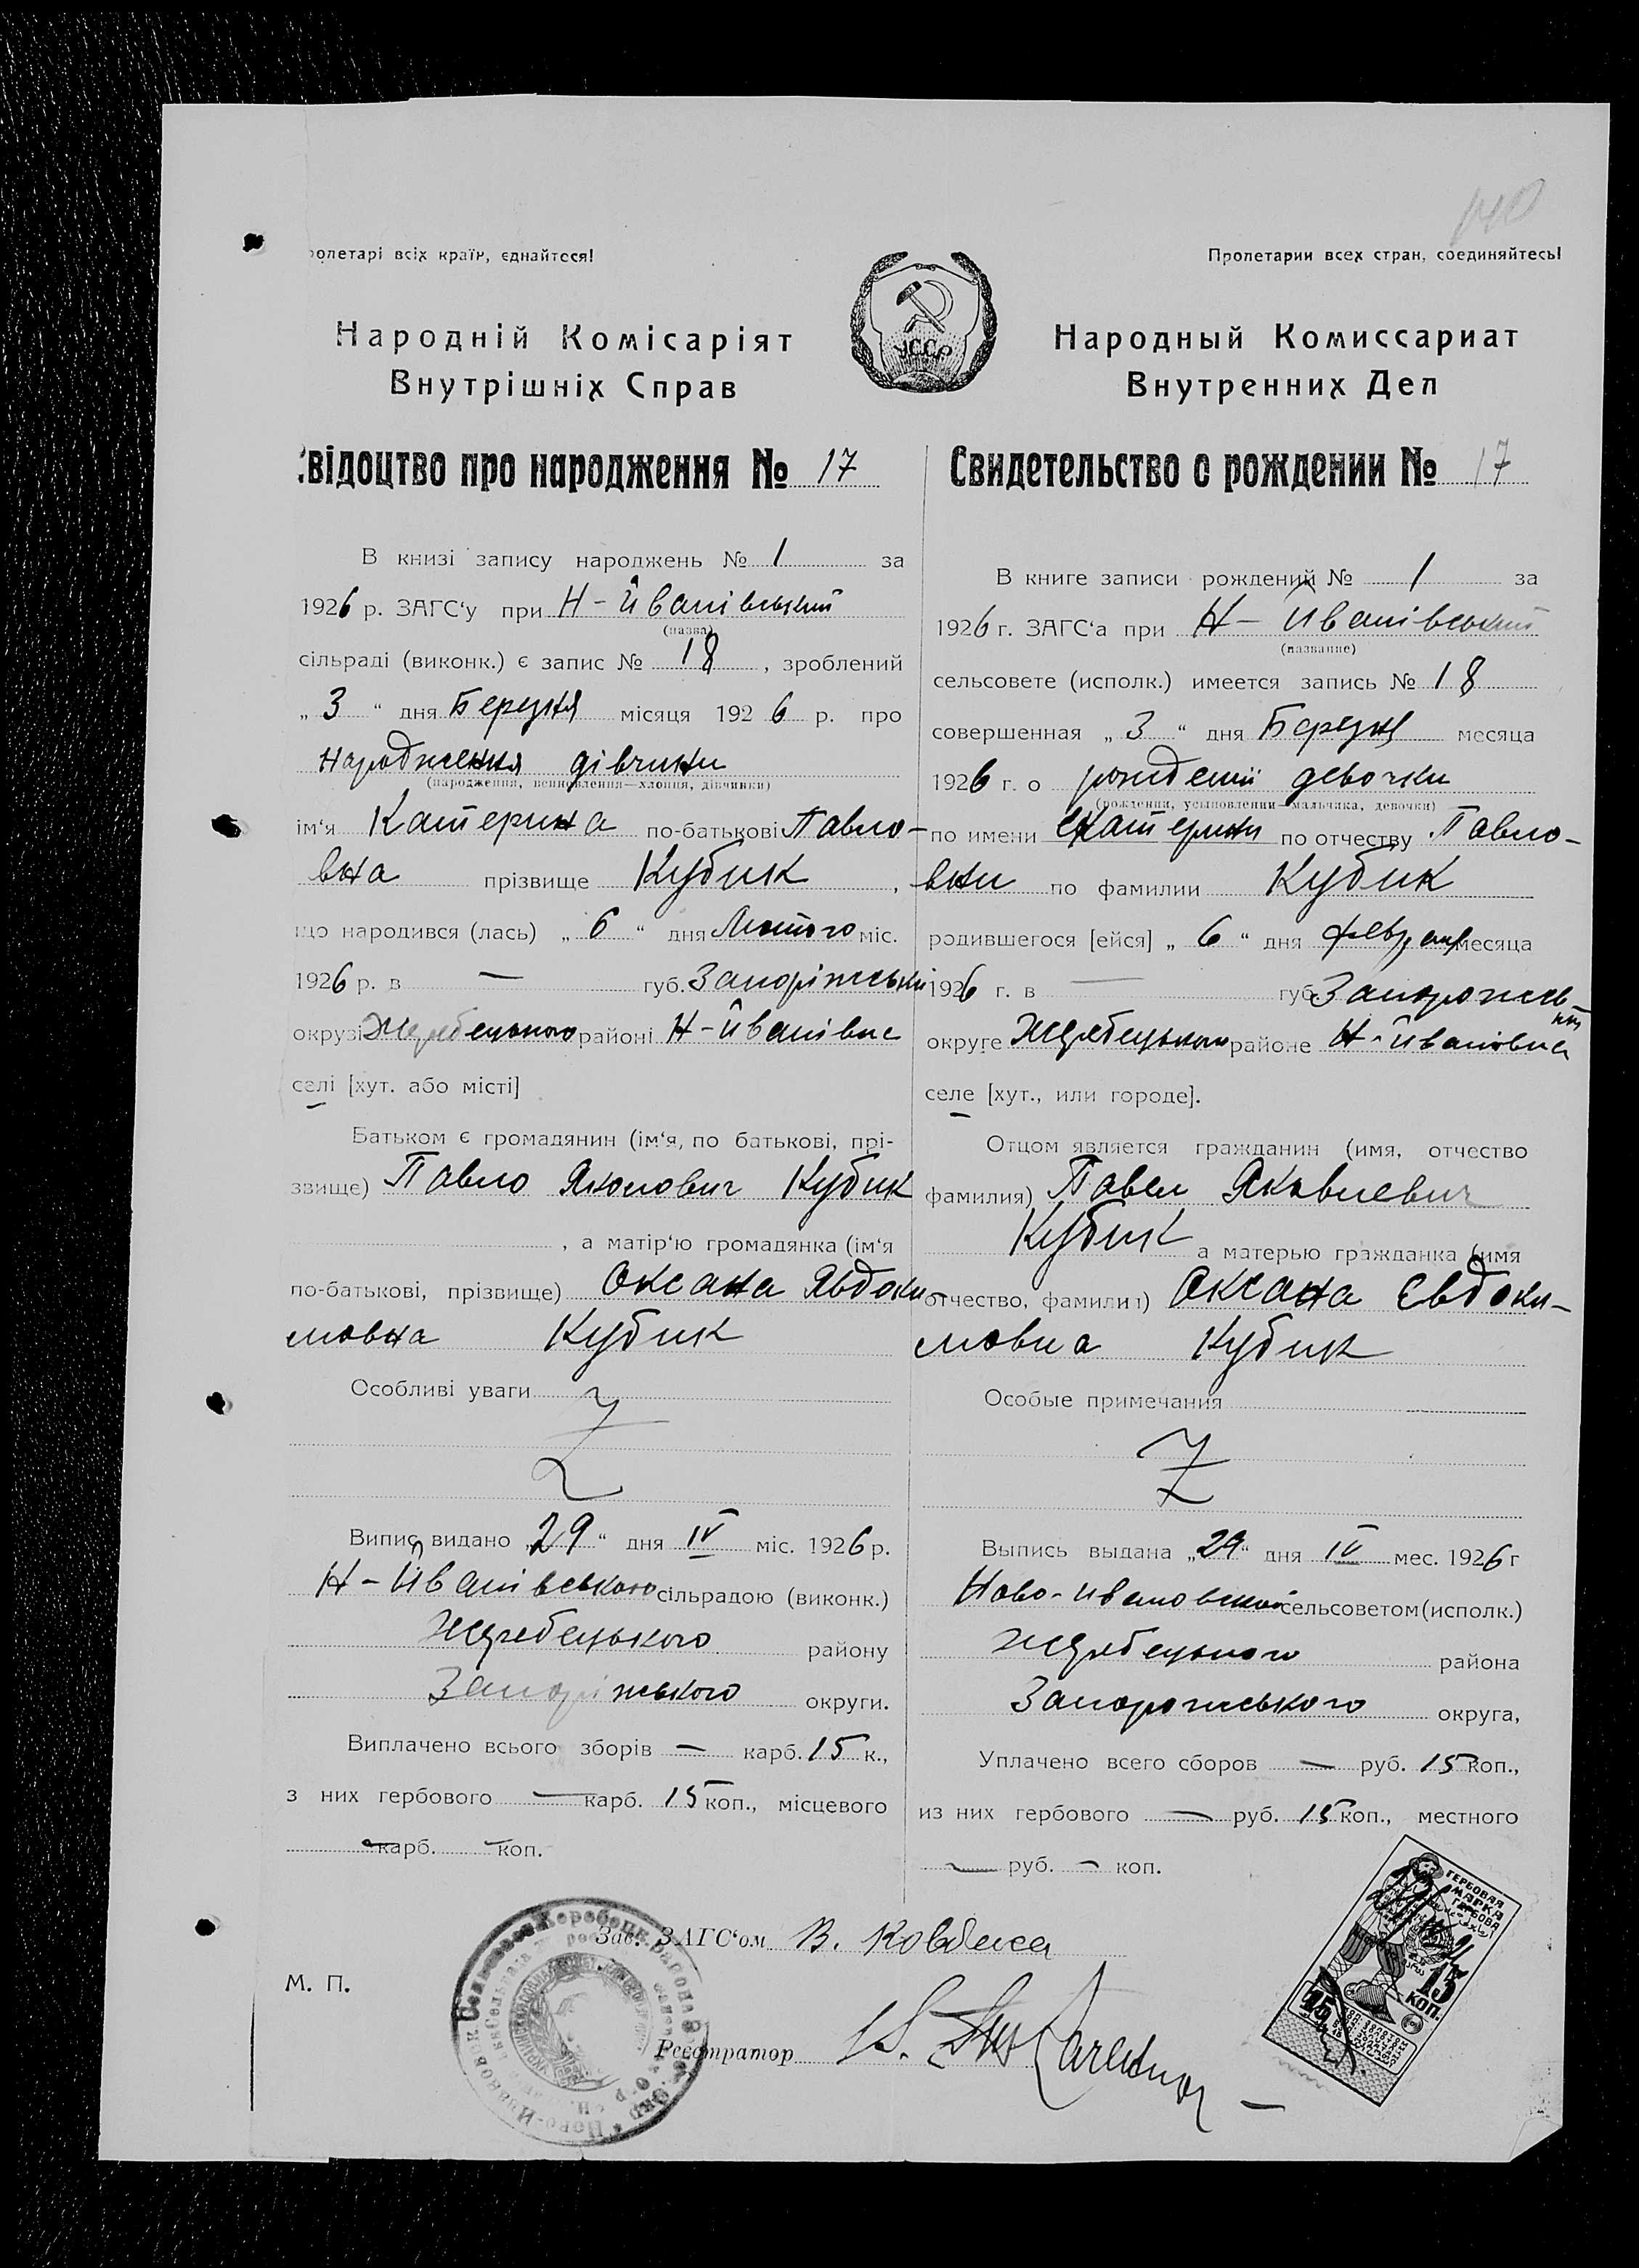 пролетарі всіх країн, єднайтеся!
Народній Комісаріят
Внутрішніх Справ
відоцтво про народження № 17
В книзі запису народжень № 1 за
1926 р. ЗАГС‘у при Н-Иванівський
(назва)
сільраді (виконк.) є запис № 18, зроблений
„3“ дня Березня місяця 1926 р. про
народження дівчини
(народження, всиновлення—хлопця, дівчинки)
ім‘я Катерина по-батькові Павло-
вна прізвище Кубик,
що народився (лась) „6“ дня Лютого міс.
1926 р. в — губ. Запоріжськи
окрузі Жеребецького районі Н-Иванівке
селі [хут. або місті]
Батьком є громадянин (ім‘я, по батькові, прі-
звище) Павло Якович Кубик
, а матір‘ю громадянка (ім‘я
по-батькові, прізвище) Оксана Явдоки-
мовна Кубик
Особливі уваги
Випис видано „29“ дня IV міс. 1926 р.
Н-Иванівською сільрадою (виконк.)
Жеребецького району
Запоріжського округи.
Виплачено всього зборів — карб. 15 к.,
з них гербового — карб. 15 коп., місцевого
— карб. — коп.
Пролетарии всех стран, соединяйтесь!
УССР
Народный Комиссариат
Внутренних Дел
Свидетельство о рождении № 17
В книге записи рождений № 1 за
1926 г. ЗАГС‘а при Н- Иванівський
(название)
сельсовете (исполк.) имеется запись № 18
совершенная „3“ дня Березня месяца
1926 г. о рождении девочки
(рождении, усыновлении—мальчика, девочки)
по имени Екатерини по отчеству Павло-
вни по фамилии Кубик
родившегося [ейся] „6“ дня февраля месяца
1926 г. в — губ. Запорожсь-
округе Жеребецького районе Н-Ивановка
селе [хут., или городе].
Отцом является гражданин (имя, отчество
фамилия) Павел Яковлевич
Кубик а матерью гражданка (имя
отчество, фамилия) Оксана Євдоки-
мовна Кубик
Особые примечания
Выпись выдана „29“ дня IV мес. 1926 г
Ново-Ивановской сельсоветом (исполк.)
Жеребецького района
Запорожського округа,
Уплачено всего сборов — руб. 15 коп.,
из них гербового — руб. 15 коп., местного
— руб. — коп.
Зав. ЗАГС‘ом В.
М. П.
Реєстратор
ГЕРБОВАЯ
МАРКА
ГЕРБОВА
15
КОП.
15